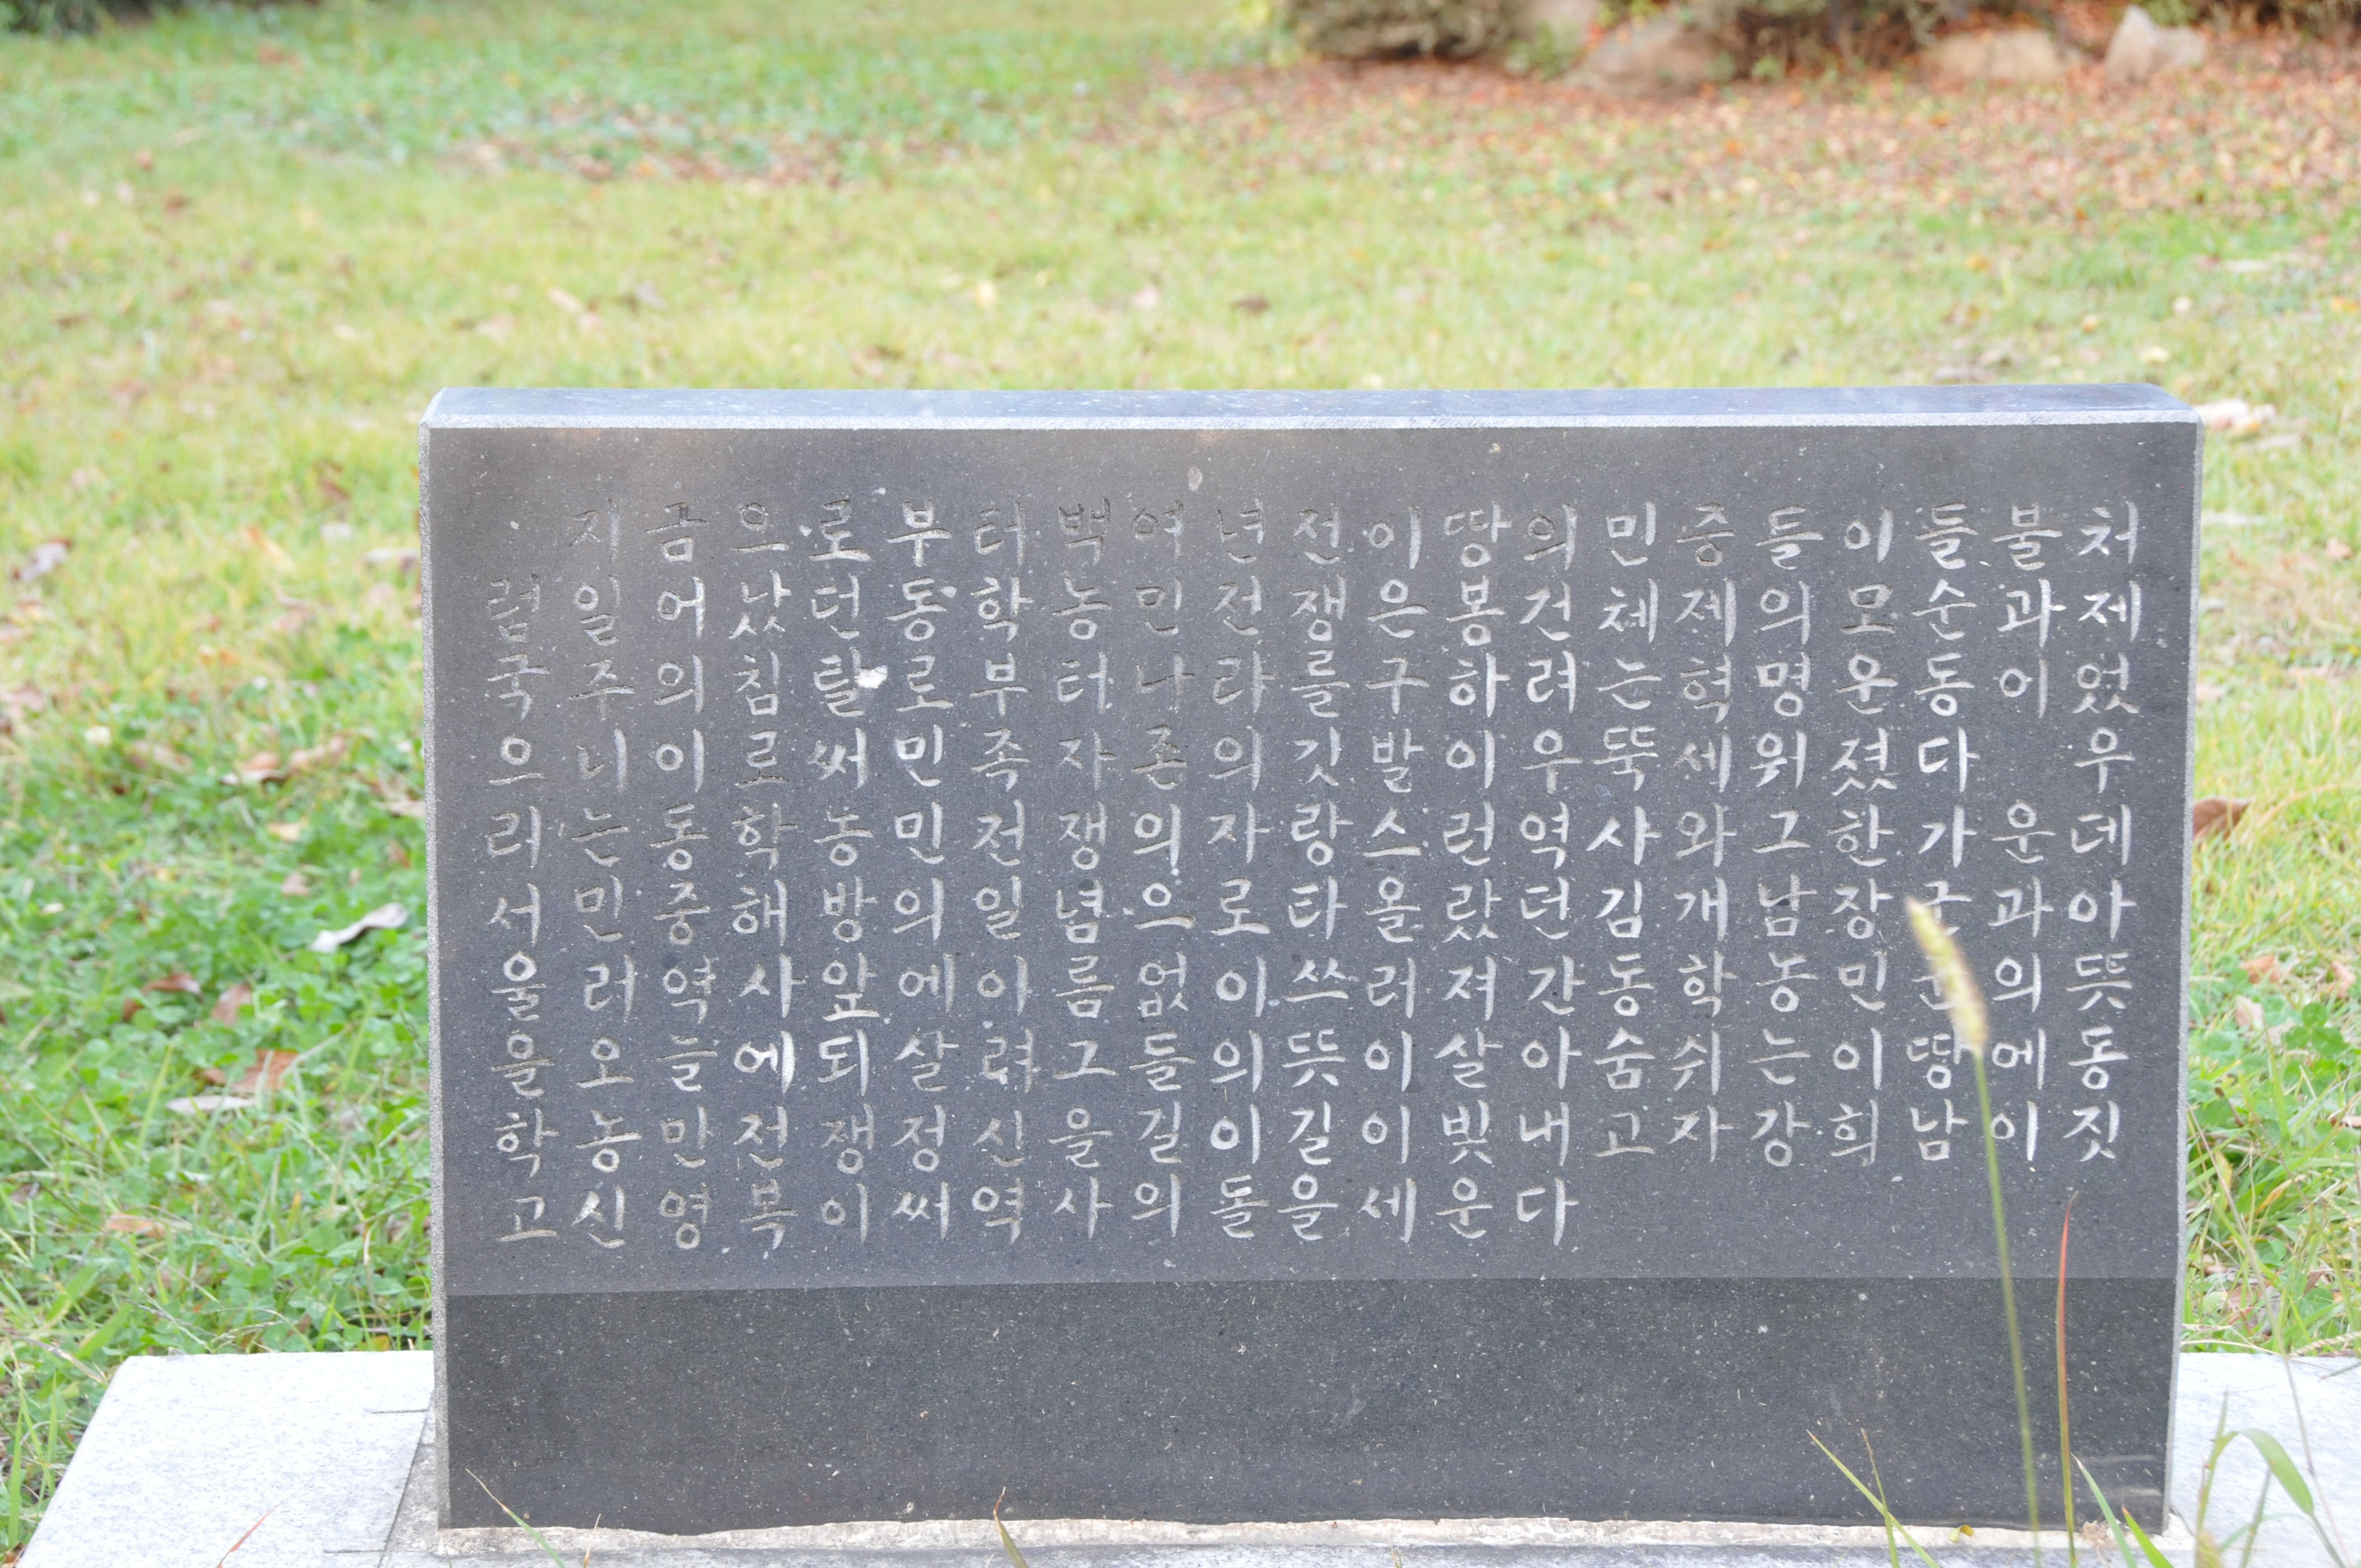 지금으로부터백여년전이땅의민중들이들불처
럼일어났던동학농민전쟁은봉건체제의모순과제
국주의침탈로부터나라를구하려는혁명운동이었
으니이로써민족자존의깃발이우뚝세워졌다 우
리는동학농민전쟁의자랑스런역사와그한가운데
서민중해방의일념으로타올랐던김개남장군과아
울러역사앞에아름없이쓰러져간동학농민군의뜻
을오늘에되살려그들의뜻이살아숨쉬는이땅에동
학농민전쟁정신을길이길이빛내고자강희남이짓
고신영복이써역사의돌을세운다